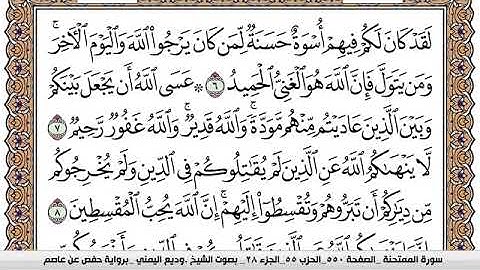 لَقَدْ كَانَ لَكُمْ فِيهِمْ أُسْوَةٌ حَسَنَةٌ لِّمَن كَانَ يَرْجُوا۟ ٱللَّهَ وَٱلْيَوْمَ ٱلْءَاخِرَ ۚ
وَمَن يَتَوَلَّ فَإِنَّ ٱللَّهَ هُوَ ٱلْغَنِىُّ ٱلْحَمِيدُ ٦ ۞ عَسَى ٱللَّهُ أَن يَجْعَلَ بَيْنَكُمْ
وَبَيْنَ ٱلَّذِينَ عَادَيْتُم مِّنْهُم مَّوَدَّةً ۚ وَٱللَّهُ قَدِيرٌ ۚ وَٱللَّهُ غَفُورٌ رَّحِيمٌ ٧
لَّا يَنْهَىٰكُمُ ٱللَّهُ عَنِ ٱلَّذِينَ لَمْ يُقَٰتِلُوكُمْ فِى ٱلدِّينِ وَلَمْ يُخْرِجُوكُم
مِّن دِيَٰرِكُمْ أَن تَبَرُّوهُمْ وَتُقْسِطُوٓا۟ إِلَيْهِمْ ۚ إِنَّ ٱللَّهَ يُحِبُّ ٱلْمُقْسِطِينَ ٨
سورة الممتحنة _الصفحة ٥٥٠_الحزب ٥٥_الجزء ٢٨_ بصوت الشيخ .وديع اليمني _برواية حفص عن عاصم